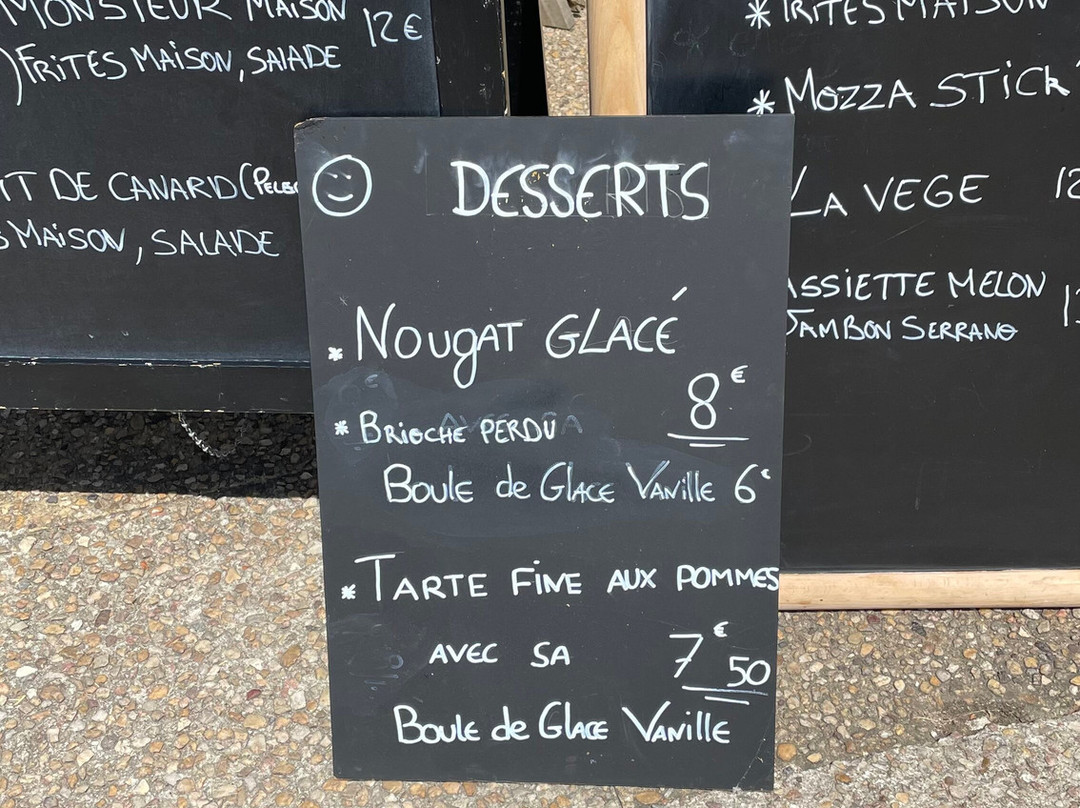 MONSIEUR MAISON 12€
FRITES MAISON, SALADE
DE CANARD
MAISON, SALADE
DESSERTS
* NOUGAT GLACÉ
8€
* BRIOCHE PERDU
BOULE de GLACE VANILLE 6€
* TARTE FINE AUX POMMES
AVEC SA 7€50
BOULE de GLACE VANILLE
* FRITES MAISON
* MOZZA STICK
LA VEGE
ASSIETTE MELON
JAMBON SERRANO